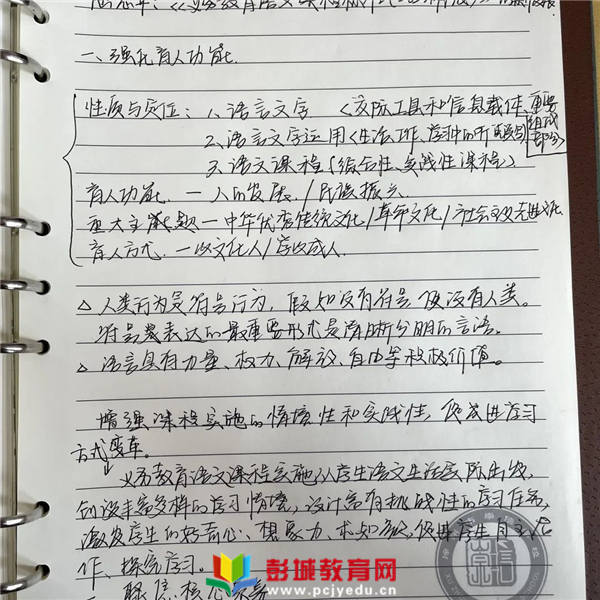 一、强化育人功能.
性质与定位：1、语言文字〈交际工具和信息载体、重要组成部分〉
2、语言文字运用〈生活、工作、学习中的
3、语文课程（综合性、实践性课程）
育人功能 — 人的发展/民族振兴
重大主题 — 中华优秀传统文化/革命文化/社会主义先进文化
育人方式 — 以文化人/
△ 人类行为是符号行为，假如没有符号便没有人类。
符号表达的最重要形式是清晰分明的言语。
△ 语言具有力量、权力、解放、自由等积极价值。
增强课程实施的情境性和实践性，促进学习
方式变革。
→义务教育语文课程实施从学生语文生活实际出发，
创设丰富多样的学习情境，设计富有挑战性的学习任务，
激发学生的好奇心、想象力、求知欲，促进学生自主、合
作、探究学习。
彭城教育网
www.pcjyedu.cn